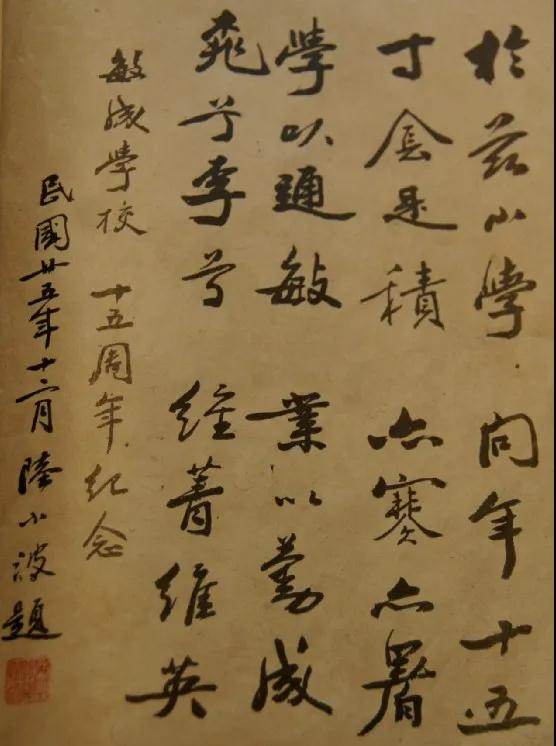 於茲小學 問年十五
寸金是積 亦寒亦暑
學以通敏 業以勤成
桃兮李兮 維菁維英
敏成學校 十五周年紀念
民國廿五年十二月 陸小波題